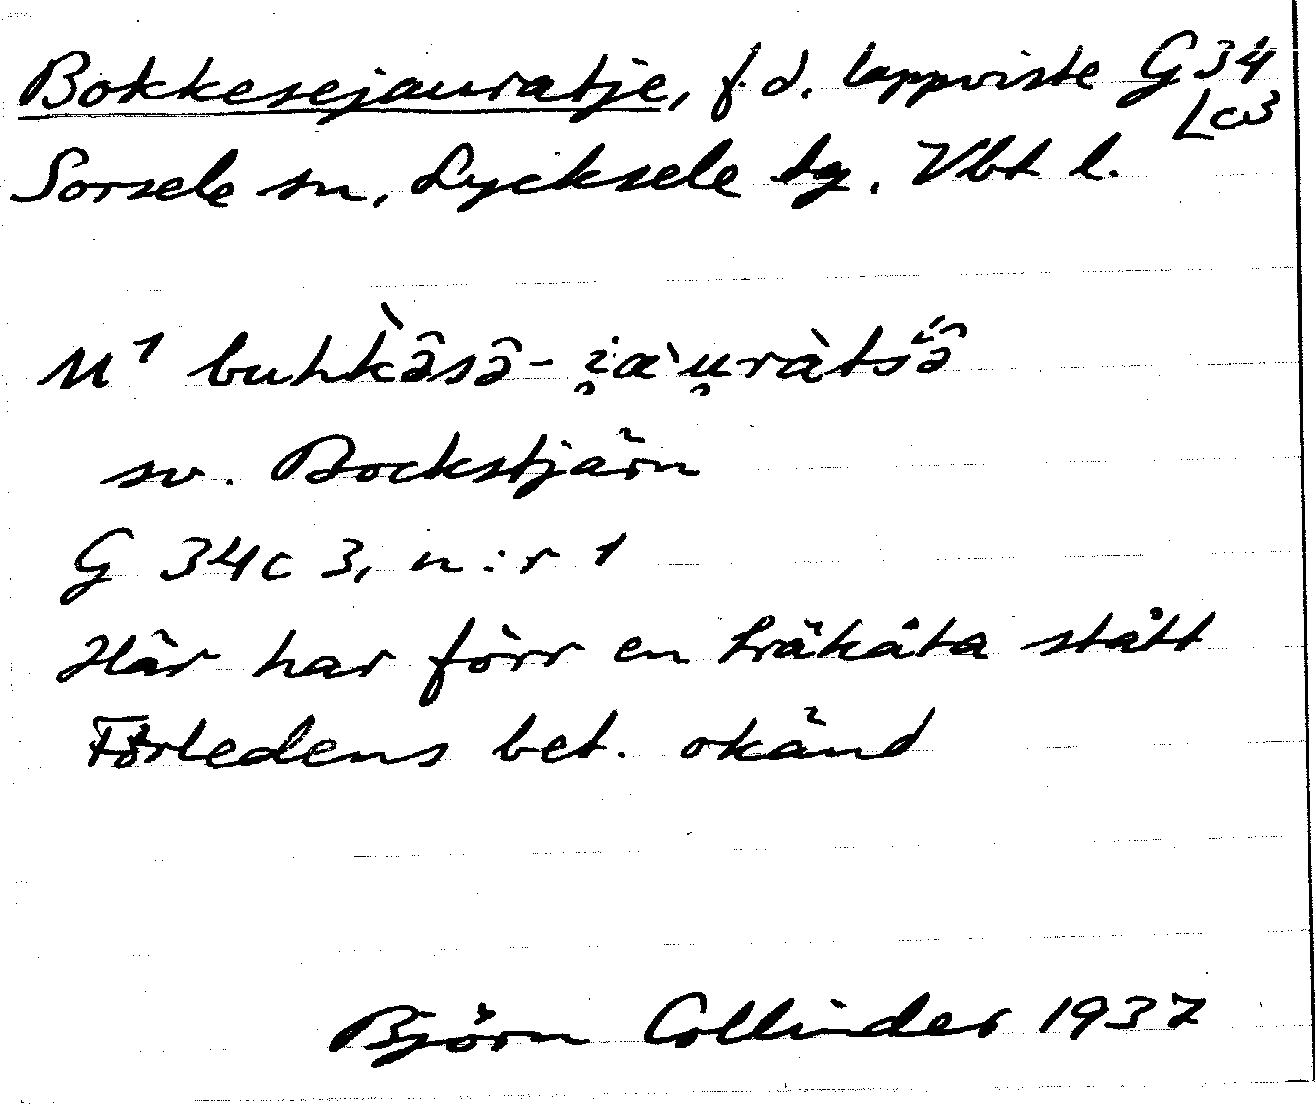 Bokkesejauratje, f.d. lappviste G 34
Lc3
Sorsele sn, Lycksele tg. Vbt l.
M1 buhkə̂sə̂- i̯a`u̯ràts´ə̂
sv. Bockstjärn
G 34c 3, n:r 1
Här har förr en träkåta stått
Förledens bet. okänd
Björn Collinder 1937